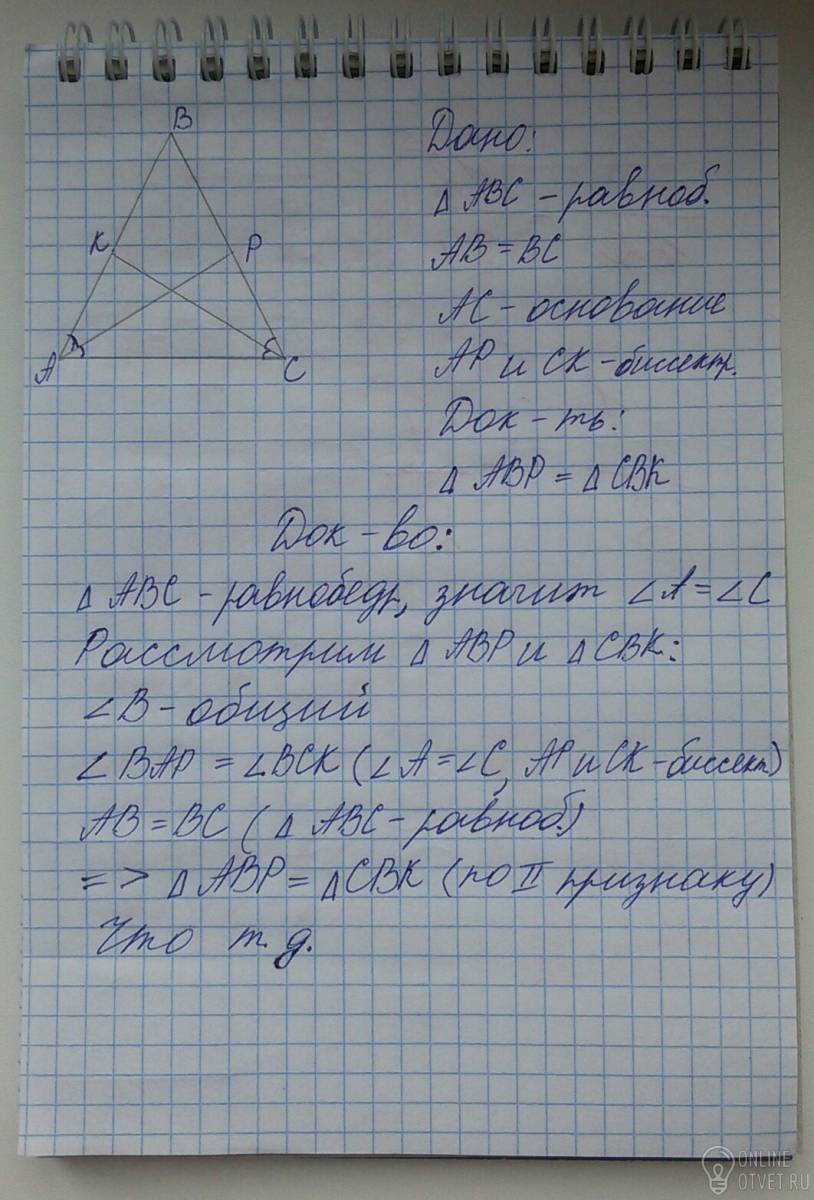 B
K
P
A
C
Дано:
Δ ABC - равноб.
AB = BC
AC - основание
AP и CK - биссектр.
Док-ть:
Δ ABP = Δ CBK
Док-во:
Δ ABC - равнобедр, значит ∠A = ∠C
Рассмотрим Δ ABP и Δ CBK:
∠B - общий
∠BAP = ∠BCK (∠A = ∠C, AP и CK - биссект)
AB = BC (Δ ABC - равноб.)
=> Δ ABP = Δ CBK (по II признаку)
Что т. д.
ONLINE
OTVET.RU